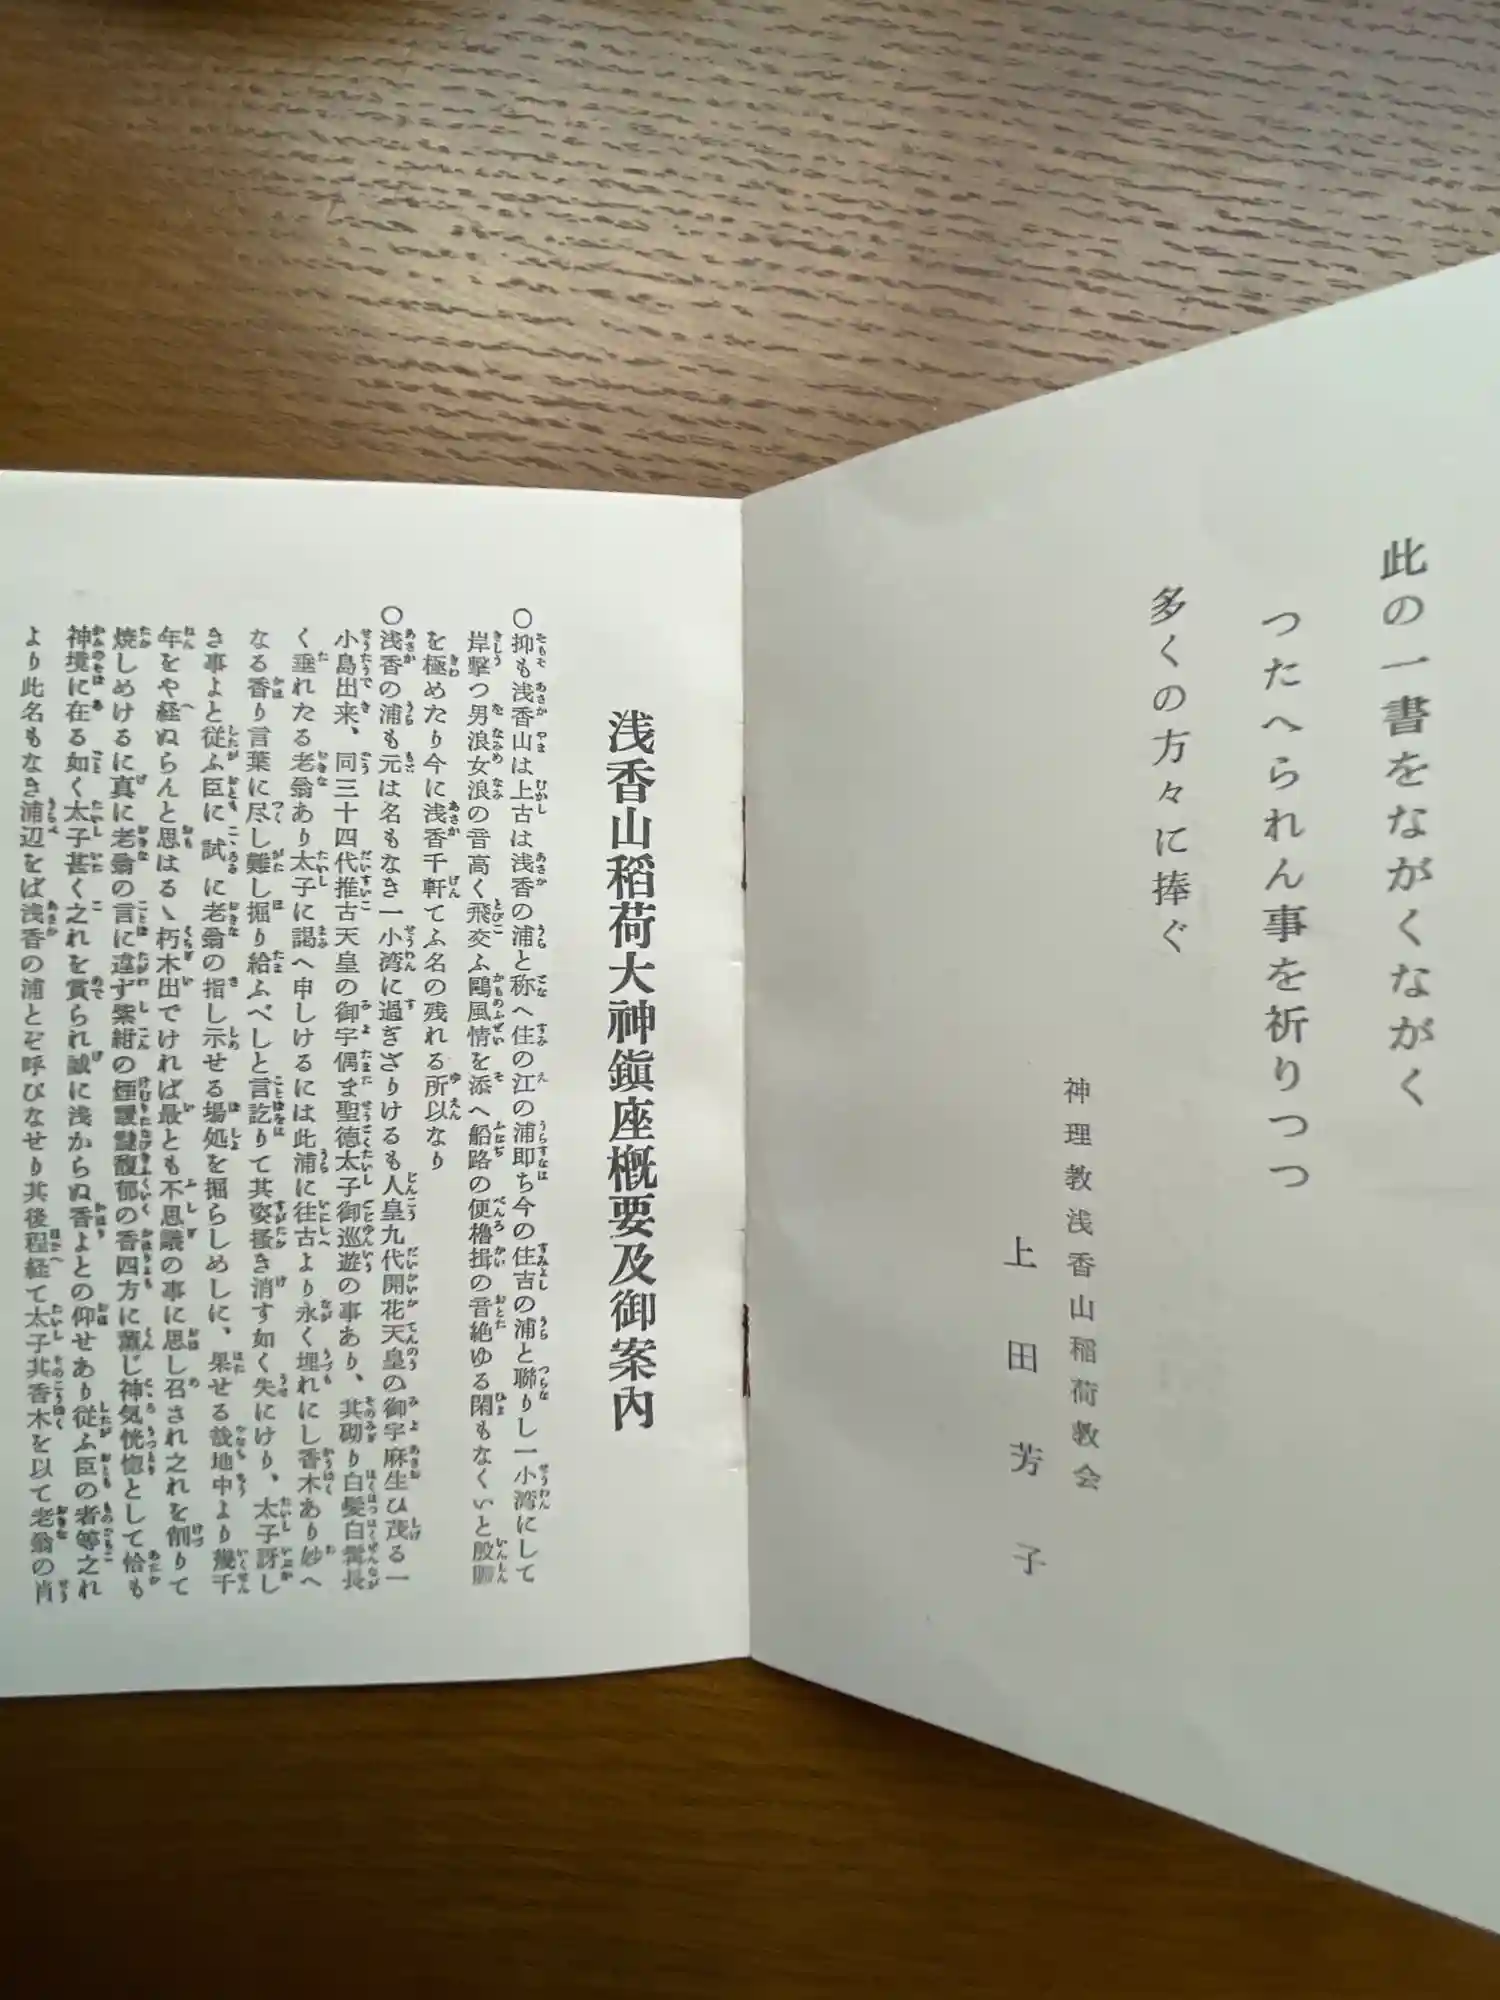 此の一書をながくながく
つたへられん事を祈りつつ
多くの方々に捧ぐ
神理教浅香山稲荷教会
上田芳子
浅香山稲荷大神鎭座概要及御案内
〇抑も浅香山は上古は浅香の浦と称へ住の江の浦即ち今の住吉の浦と聯りし一小湾にして
岸撃つ男浪女浪の音高く飛交ふ鷗風情を添へ船路の便櫓揖の音絶ゆる閑もなくいと殷賑
を極めたり今に浅香千軒てふ名の残れる所以なり
〇浅香の浦も元は名もなき一小湾に過ぎざりけるも人皇九代開花天皇の御宇麻生ひ茂る一
小島出来、同三十四代推古天皇の御宇偶ま聖徳太子御巡遊の事あり、其砌り白髪白髯長
く垂れたる老翁あり太子に謁へ申しけるには此浦に往古より永く埋れにし香木あり妙へ
なる香り言葉に尽し難し掘り給ふべしと言訖りて其姿搔き消す如く失にけり、太子訝し
き事よと従ふ臣に試に老翁の指し示せる場処を掘らしめしに、果せる哉地中より幾千
年をや経ぬらんと思はるゝ朽木出でければ最とも不思議の事に思し召され之れを削りて
焼しめけるに真に老翁の言に違ず紫紺の煙靉靆馥郁の香四方に薫じ神気恍惚として恰も
神境に在る如く太子甚く之れを賞られ誠に浅からぬ香よとの仰せあり従ふ臣の者等之れ
より此名もなき浦辺をば浅香の浦とぞ呼びなせり其後程経て太子其香木を以て老翁の肖